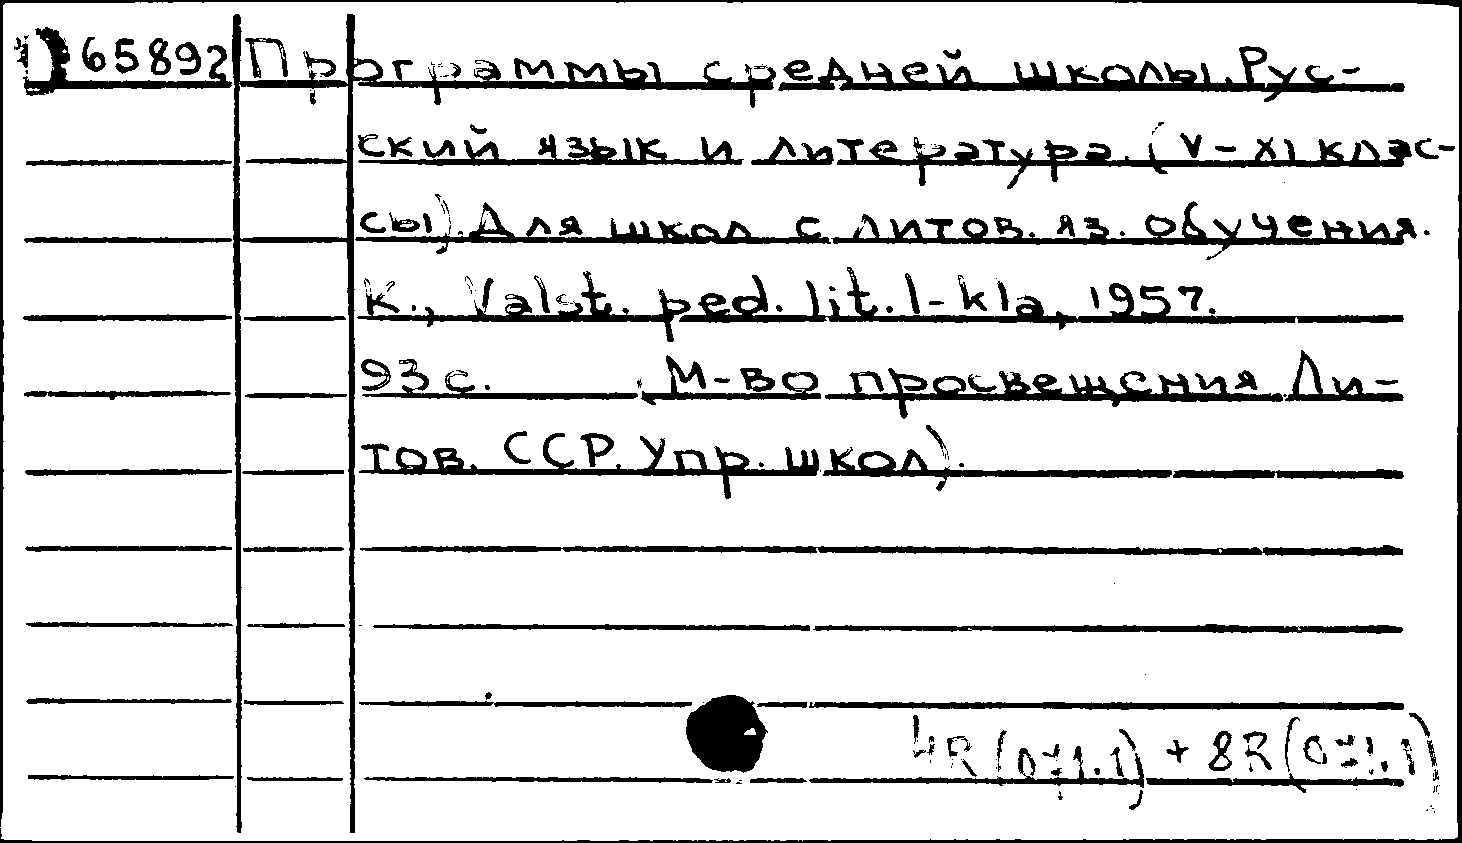 65892 Программы средней школы. Рус-
ский язык и литература. (V-XI клас-
сы). Для школ с литов. яз. обучения.
K., Valst. ped. lit. l-kla, 1957.
93 с. (М-во просвещения Ли-
тов. ССР. Упр. школ).
4R (07.1.1) + 8R (07.1.1)